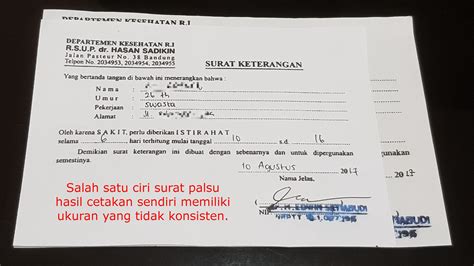 DEPARTEMEN KESEHATAN R.I
DEPARTEMEN KESEHATAN R.I
R.S.U.P. dr. HASAN SADIKIN
Jalan Pasteur No. 38 Bandung
Telpon No. 2034953, 2034954, 2034955
SURAT KETERANGAN
Yang bertanda tangan di bawah ini menerangkan bahwa :
Nama :
Umur : 26 th
Pekerjaan : swasta
Alamat : Jl.
Oleh karena SAKIT, perlu diberikan ISTIRAHAT
selama 6 hari terhitung mulai tanggal 10 s.d 16
Demikian surat keterangan ini dibuat dengan sebenarnya dan untuk dipergunakan
semestinya.
10 Agustus 2017
Nama Jelas,
Salah satu ciri surat palsu
hasil cetakan sendiri memiliki
ukuran yang tidak konsisten.
NIP
2017